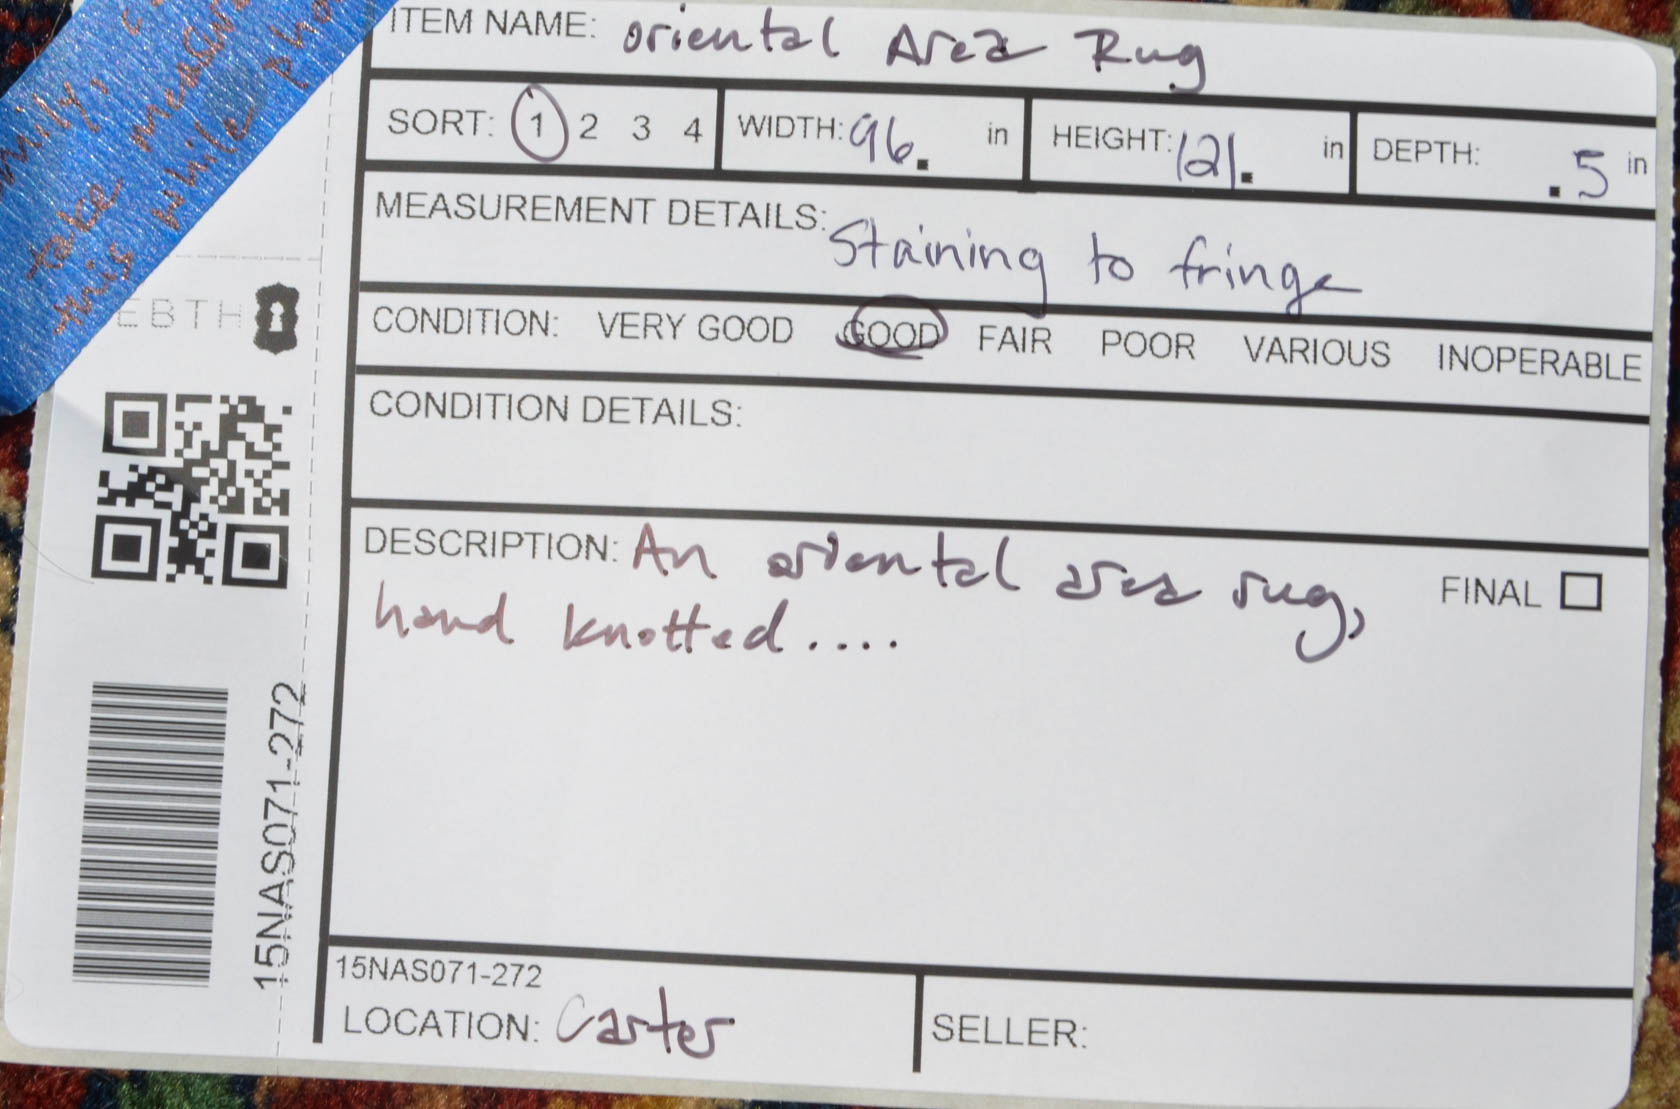 take measure
this while pho
ITEM NAME: oriental Area Rug
SORT: 1 2 3 4 WIDTH: 96. in HEIGHT: 121. in DEPTH: .5 in
MEASUREMENT DETAILS: Staining to fringe
CONDITION: VERY GOOD GOOD FAIR POOR VARIOUS INOPERABLE
CONDITION DETAILS:
DESCRIPTION: An oriental area rug, FINAL
hand knotted....
EBTH
15NAS071-272
15NAS071-272
LOCATION: Carter SELLER: